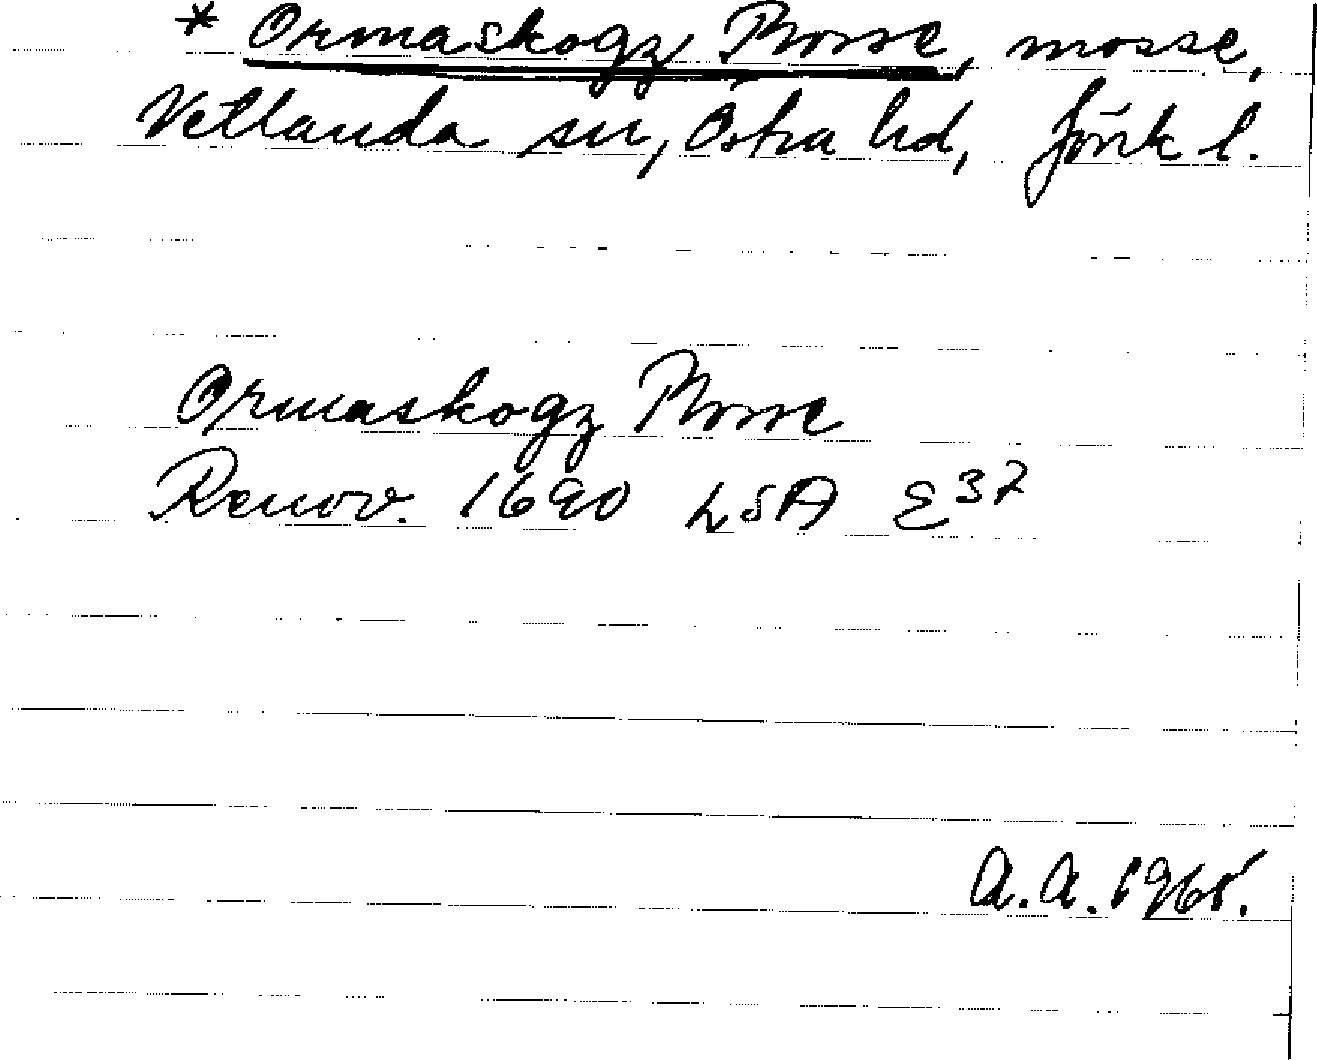 * Ormaskogz Mosse, mosse,
Vetlanda sn, Östra hd, Jönk l.
Ormaskogz Mosse
Renov. 1690 LSA E37
A.A. 1965.